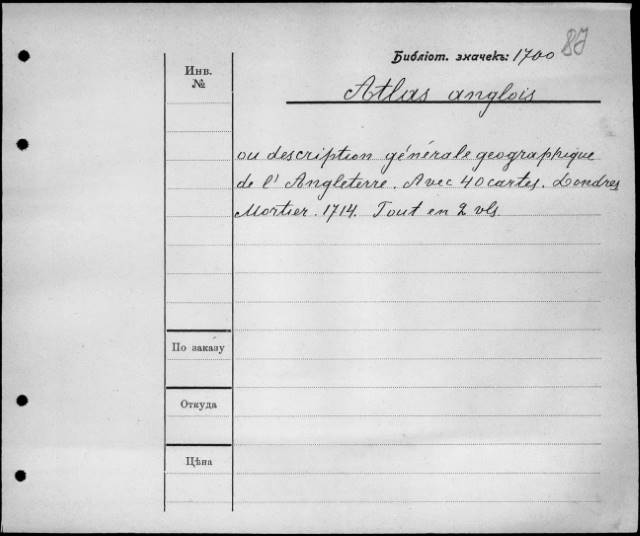 87
Библіот. значекъ: 1700
Инв.
№
Atlas anglois
ou description générale geographique
de l' Angleterre. Avec 40 cartes. Londres
Mortier. 1714. Tout en 2 vls
По заказу
Откуда
Цѣна